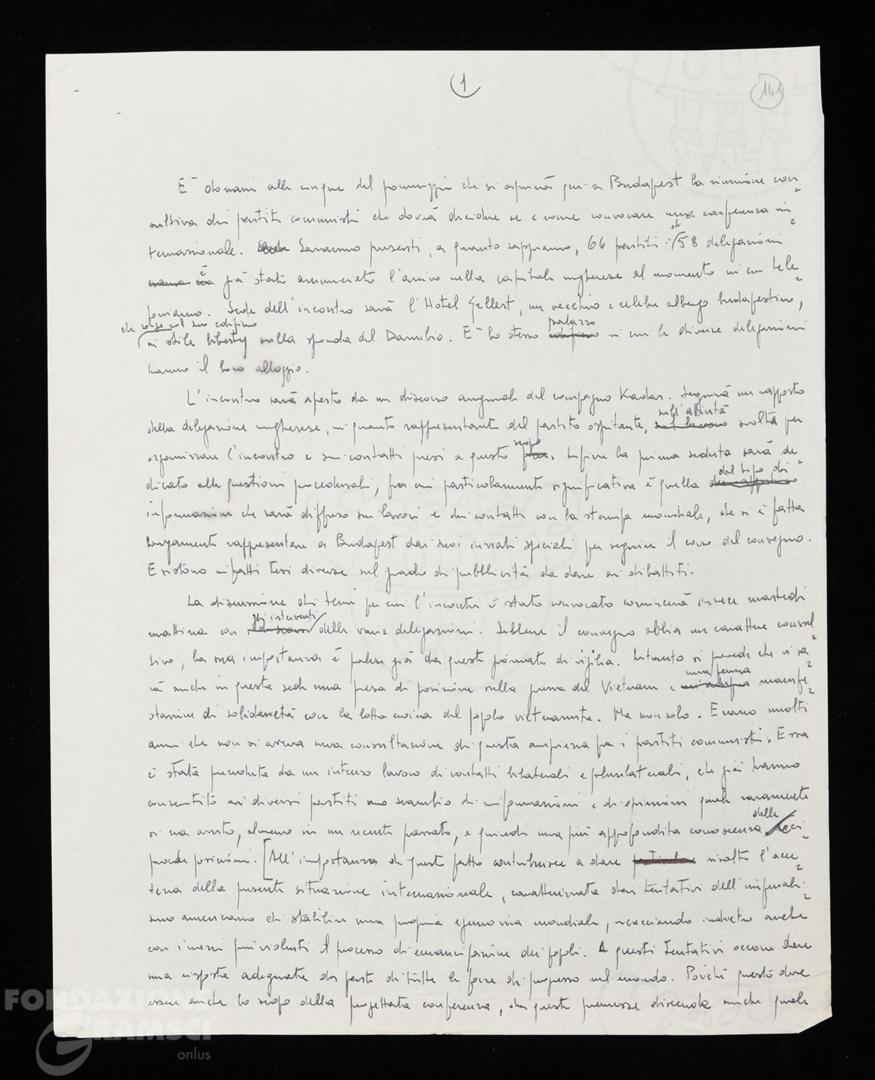 1
141
E' domani alle cinque del pomeriggio che si aprirà qui a Budapest la riunione con=
sultiva dei partiti comunisti che dovrà decidere se e come convocare una conferenza in=
ternazionale. Saranno presenti, a quanto sappiamo, 66 partiti: di 58 delegazioni
è già stato annunciato l'arrivo nella capitale ungherese al momento in cui tele=
foniamo. Sede dell'incontro sarà l'Hotel Gellert, un vecchio e celebre albergo budapestino,
che
in stile liberty sulla sponda del Danubio. E' lo stesso palazzo in cui le diverse delegazioni
hanno il loro alloggio.
L'incontro sarà aperto da un discorso augurale del compagno Kadar. Seguirà un rapporto
della delegazione ungherese, in quanto rappresentante del partito ospitante, sull'attività svolta per
organizzare l'incontro e sui contatti presi a questo scopo. Infine la prima seduta sarà de=
dicata alle questioni procedurali, fra cui particolarmente significativa è quella del tipo di
informazioni che sarà diffuso sui lavori e dei contatti con la stampa mondiale, che si è fatta
largamente rappresentare a Budapest dai suoi inviati speciali per seguire il corso del convegno.
Esistono infatti tesi diverse sul grado di pubblicità da dare ai dibattiti.
La discussione sui temi per cui l'incontro è stato convocato comincerà invece martedì
mattina con gli interventi delle varie delegazioni. Sebbene il convegno abbia un carattere consul=
tivo, la sua importanza è palese già da queste giornate di vigilia. Intanto si prevede che vi sa=
rà anche in questa sede una presa di posizione sulla guerra del Vietnam e una ferma manife=
stazione di solidarietà con la lotta eroica del popolo vietnamita. Ma non solo. Erano molti
anni che non si aveva una consultazione di questa ampiezza fra i partiti comunisti. Essa
è stata preceduta da un intenso lavoro di contatti bilaterali e plurilaterali, che già hanno
consentito ai diversi partiti uno scambio di informazioni e di opinioni quale raramente
si era avuto, almeno in un recente passato, e quindi una più approfondita conoscenza delle reci
proche posizioni. [All'importanza di questo fatto contribuisce a dare risalto l'acu=
tezza della presente situazione internazionale, caratterizzata dai tentativi dell'imperiali=
smo americano di stabilire una propria egemonia mondiale, ricacciando indietro anche
con i mezzi più violenti il processo di emancipazione dei popoli. A questi tentativi occorre dare
una risposta adeguata da parte di tutte le forze di progresso nel mondo. Poiché questo deve
essere anche lo scopo della progettata conferenza, da queste premesse discende anche quale
FONDAZIONE
GRAMSCI
onlus